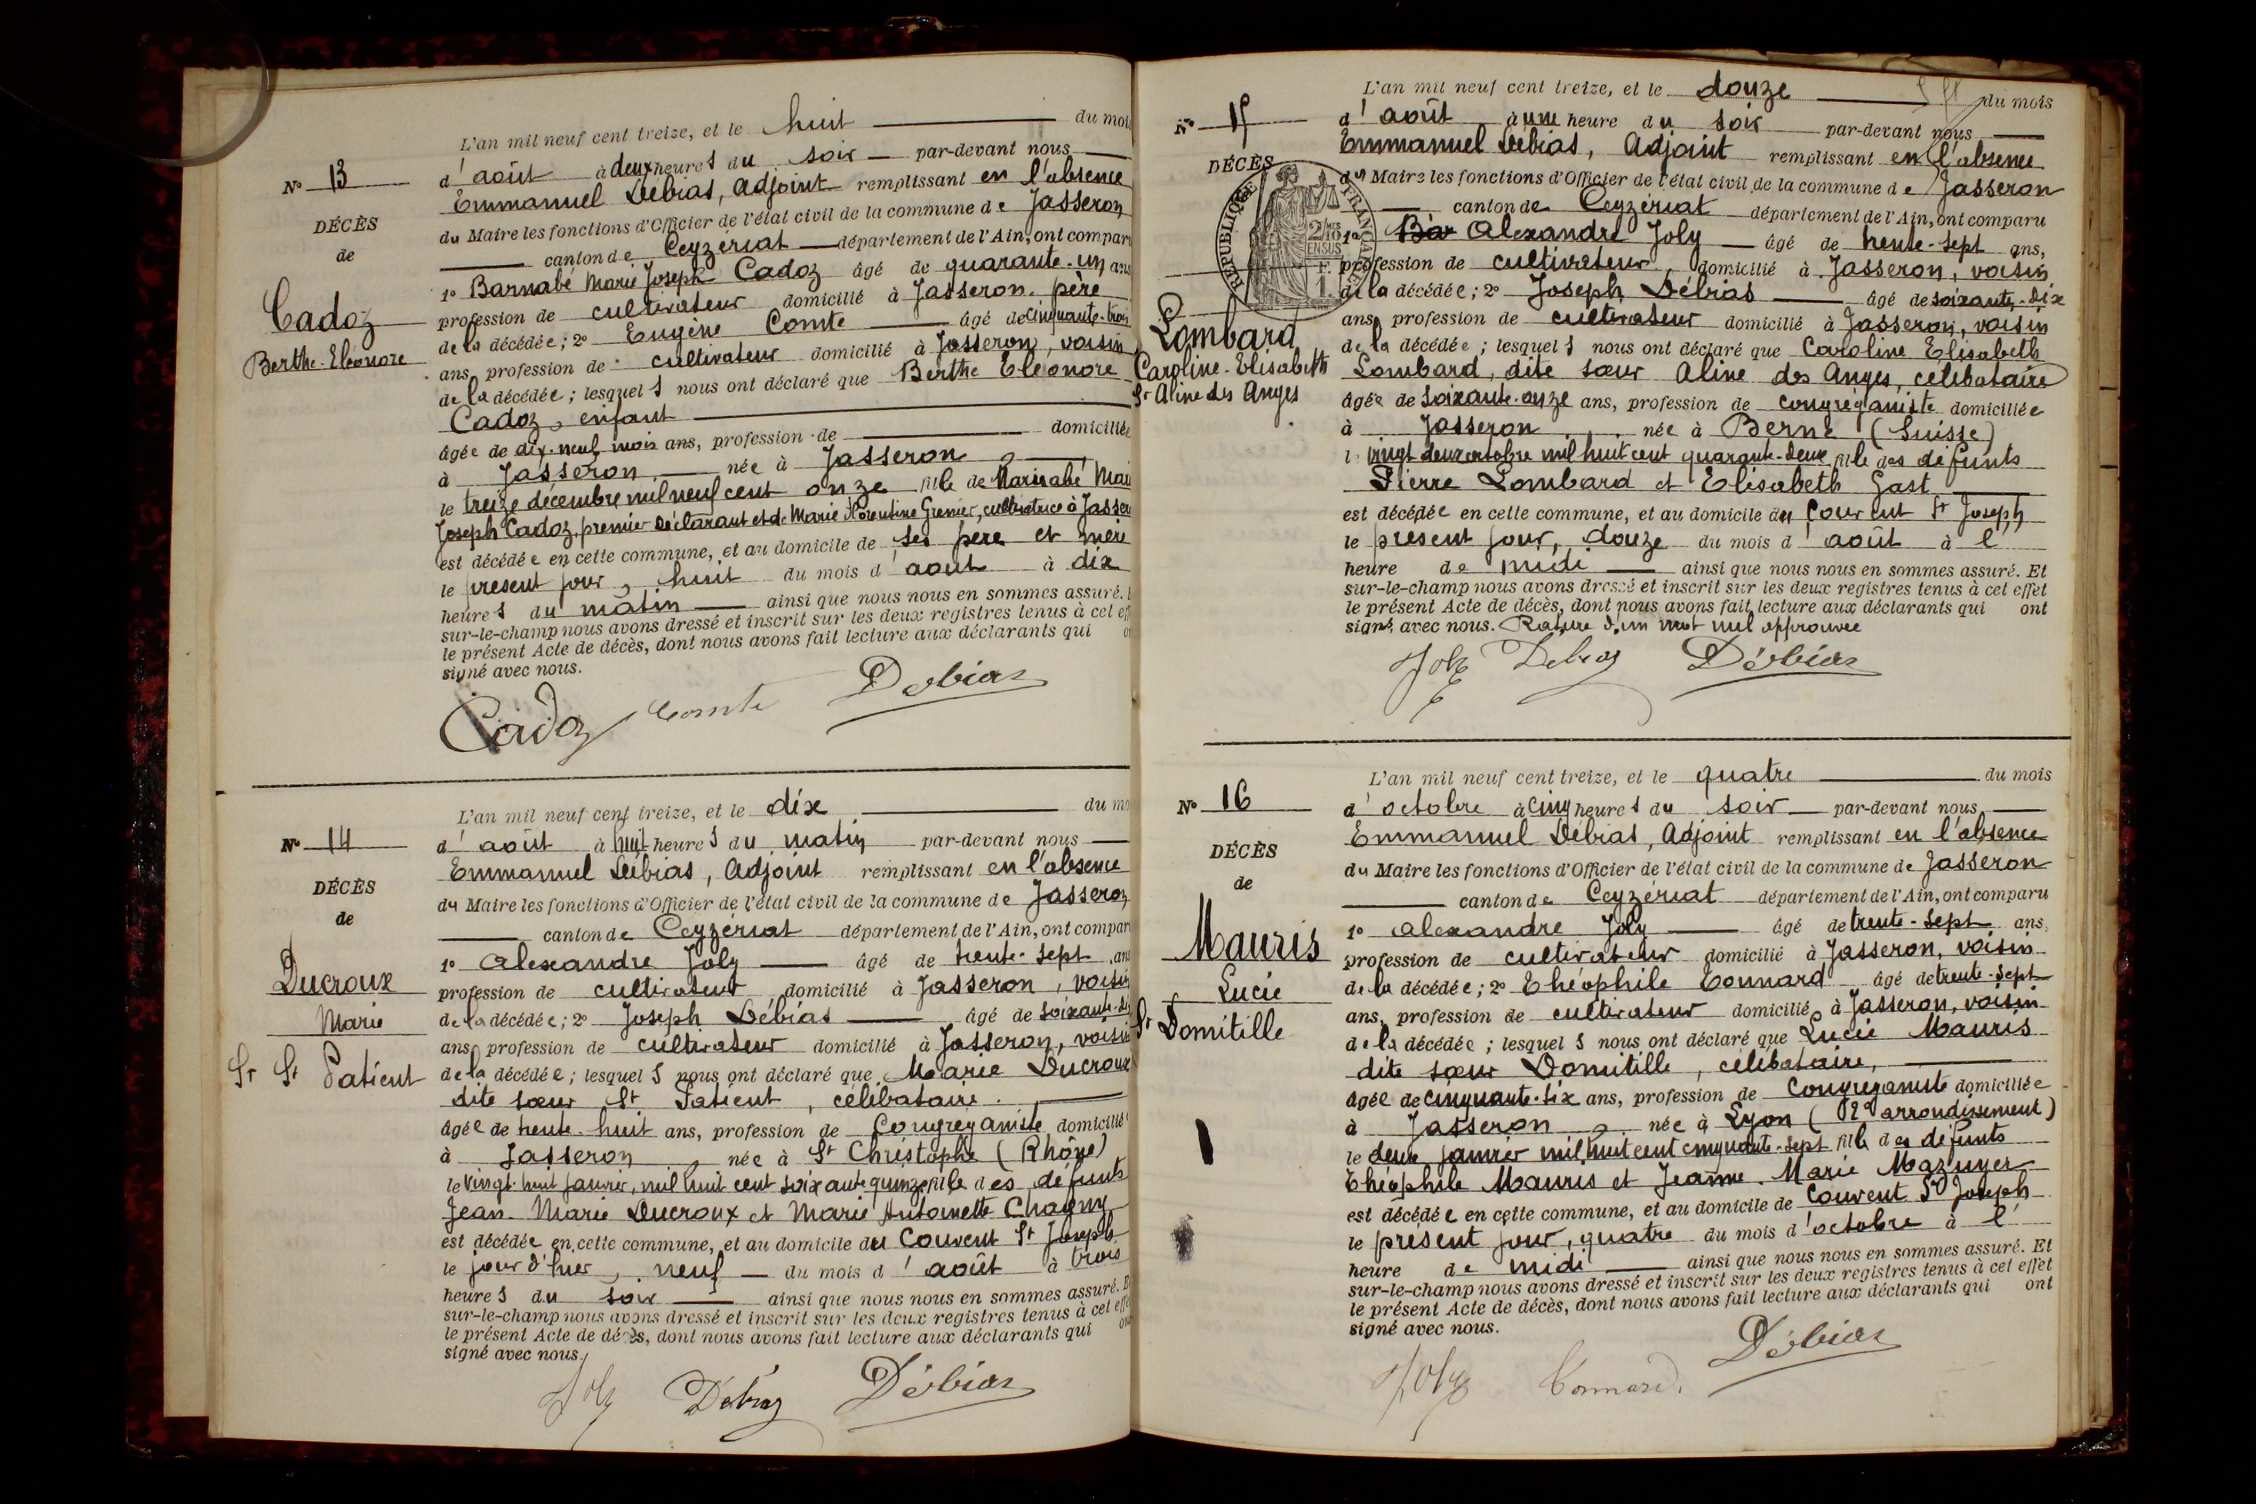 N° 13
DÉCÈS
de
Cadoz
Berthe-Eléonore
L'an mil neuf cent treize, et le huit du mois
d'août à deux heures du soir par-devant nous
Emmanuel Débias, Adjoint remplissant en l'absence
du Maire les fonctions d'Officier de l'état civil de la commune de Jasseron
canton de Ceyzériat département de l'Ain, ont compar
1° Barnabé Marie Joseph Cadoz âgé de quarante-un ans
profession de cultivateur domicilié à Jasseron, père
de la décédée; 2° Eugène Comte âgé de cinquante-trois
ans, profession de cultivateur domicilié à Jasseron, voisin
de la décédée; lesquels nous ont déclaré que Berthe Eléonore
Cadoz, enfant
âgée de dix-neuf mois ans, profession de domiciliée
à Jasseron née à Jasseron
le treize décembre mil neuf cent onze fille de Barnabé Marie
Joseph Cadoz, premier déclarant et de Marie Florentine Grenier, cultivatrice à Jasseron
est décédée en cette commune, et au domicile de ses père et mère
le présent jour, huit du mois d'août à dix
heures du matin ainsi que nous nous en sommes assuré. E
sur-le-champ nous avons dressé et inscrit sur les deux registres tenus à cet eff
le présent Acte de décès, dont nous avons fait lecture aux déclarants qui o
signé avec nous.
Cadoz Comte Débias
N° 14
DÉCÈS
de
Ducroux
Marie
Sr St Patient
L'an mil neuf cent treize, et le dix du mo
d'août à huit heures du matin par-devant nous
Emmanuel Débias, Adjoint remplissant en l'absence
du Maire les fonctions d'Officier de l'état civil de la commune de Jasseron
canton de Ceyzériat département de l'Ain, ont compar
1° Alexandre Joly âgé de trente-sept ans
profession de cultivateur domicilié à Jasseron, voisin
de la décédée; 2° Joseph Débias âgé de soixante-dix
ans, profession de cultivateur domicilié à Jasseron, voisin
de la décédée; lesquels nous ont déclaré que Marie Ducroux
dite sœur St Patient, célibataire.
âgée de trente-huit ans, profession de Congréganiste domiciliée
à Jasseron, née à St Christophe (Rhône)
le vingt-huit janvier, mil huit cent soixante quinze fille des défunts
Jean-Marie Ducroux et Marie Antoinette Chagny
est décédée en cette commune, et au domicile du Couvent St Joseph
le jour d'hier, neuf du mois d'août à trois
heures du soir ainsi que nous nous en sommes assuré. E
sur-le-champ nous avons dressé et inscrit sur les deux registres tenus à cet effe
le présent Acte de décès, dont nous avons fait lecture aux déclarants qui on
signé avec nous.
Joly Debiaz Débias
N° 15
DÉCÈS
RÉPUBLIQUE FRANÇAISE
2/10
EN SUS
1 F.
Lombard
Caroline-Elisabeth
Sr Aline des Anges
L'an mil neuf cent treize, et le douze du mois
d'août à une heure du soir par-devant nous
Emmanuel Débias, Adjoint remplissant en l'absence
du Maire les fonctions d'Officier de l'état civil de la commune de Jasseron
canton de Ceyzériat département de l'Ain, ont comparu
1° Bar Alexandre Joly âgé de trente-sept ans,
profession de cultivateur domicilié à Jasseron, voisin
de la décédée; 2° Joseph Débias âgé de soixante-dix
ans, profession de cultivateur domicilié à Jasseron, voisin
de la décédée; lesquels nous ont déclaré que Caroline Elisabeth
Lombard, dite sœur Aline des Anges, célibataire
âgée de soixante-onze ans, profession de congréganiste domiciliée
à Jasseron née à Berne (Suisse)
le vingt deux octobre mil huit cent quarante-deux fille des défunts
Pierre Lombard et Elisabeth Gast
est décédée en cette commune, et au domicile du Couvent St Joseph
le présent jour, douze du mois d'août à l'
heure de midi ainsi que nous nous en sommes assuré. Et
sur-le-champ nous avons dressé et inscrit sur les deux registres tenus à cet effet
le présent Acte de décès, dont nous avons fait lecture aux déclarants qui ont
signé avec nous. Rature d'un mot nul approuvée
Joly Debiaz Débias
N° 16
DÉCÈS
de
Mauris
Lucie
Sr Domitille
L'an mil neuf cent treize, et le quatre du mois
d'octobre à cinq heures du soir par-devant nous
Emmanuel Débias, Adjoint remplissant en l'absence
du Maire les fonctions d'Officier de l'état civil de la commune de Jasseron
canton de Ceyzériat département de l'Ain, ont comparu
1° Alexandre Joly âgé de trente-sept ans,
profession de cultivateur domicilié à Jasseron, voisin
de la décédée; 2° Théophile Connard âgé de trente-sept
ans, profession de cultivateur domicilié à Jasseron, voisin
de la décédée; lesquels nous ont déclaré que Lucie Mauris
dite sœur Domitille, célibataire,
âgée de cinquante-six ans, profession de Congréganiste domiciliée
à Jasseron, née à Lyon (2e arrondissement)
le deux janvier mil huit cent cinquante-sept fille des défunts
Théophile Mauris et Jeanne-Marie Mazuyer
est décédée en cette commune, et au domicile de Couvent St Joseph
le présent jour, quatre du mois d'octobre à l'
heure de midi ainsi que nous nous en sommes assuré. Et
sur-le-champ nous avons dressé et inscrit sur les deux registres tenus à cet effet
le présent Acte de décès, dont nous avons fait lecture aux déclarants qui ont
signé avec nous.
Joly Connard. Débias